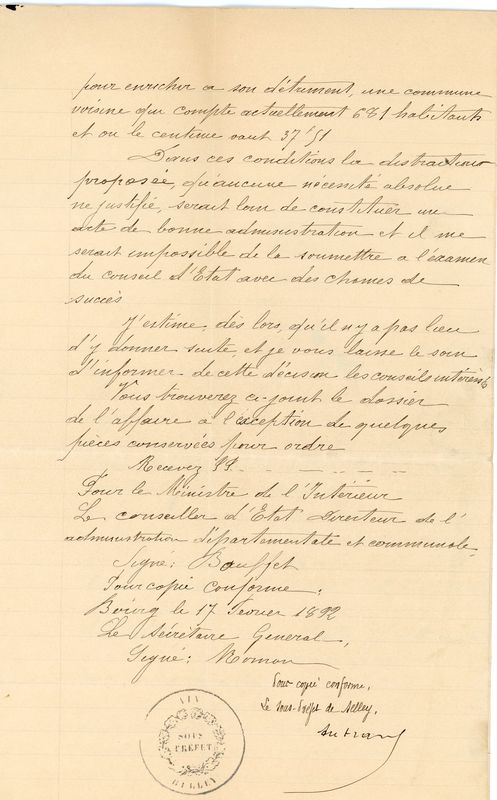 pour enrichir a son détriment, une commune
voisine qui compte actuellement 681 habitants
et ou le centime vaut 37f51
Dans ces conditions la distraction
proposée, qu'aucune nécessité absolue
ne justifie, serait loin de constituer un
acte de bonne administration et il me
serait impossible de la soumettre a l'examen
du conseil d'Etat avec des chances de
succès
J'estime, dès lors, qu'il n'y a pas lieu
d'y donner suite, et je vous laisse le soin
d'informer de cette décision les conseils intéressés
Vous trouverez ci-joint le dossier
de l'affaire a l'exception de quelques
pièces conservées pour ordre
Recevez
Pour le Ministre de l'Intérieur
Le conseiller d'Etat Directeur de l'
administration départementale et communale,
Signé: Bouffet
Pour copie conforme:
Bourg le 17 février 1892
Le Secrétaire General,
Signé:
Pour copie conforme,
Le Sous-Préfet de Belley,
AIN
SOUS
PREFET
BELLEY